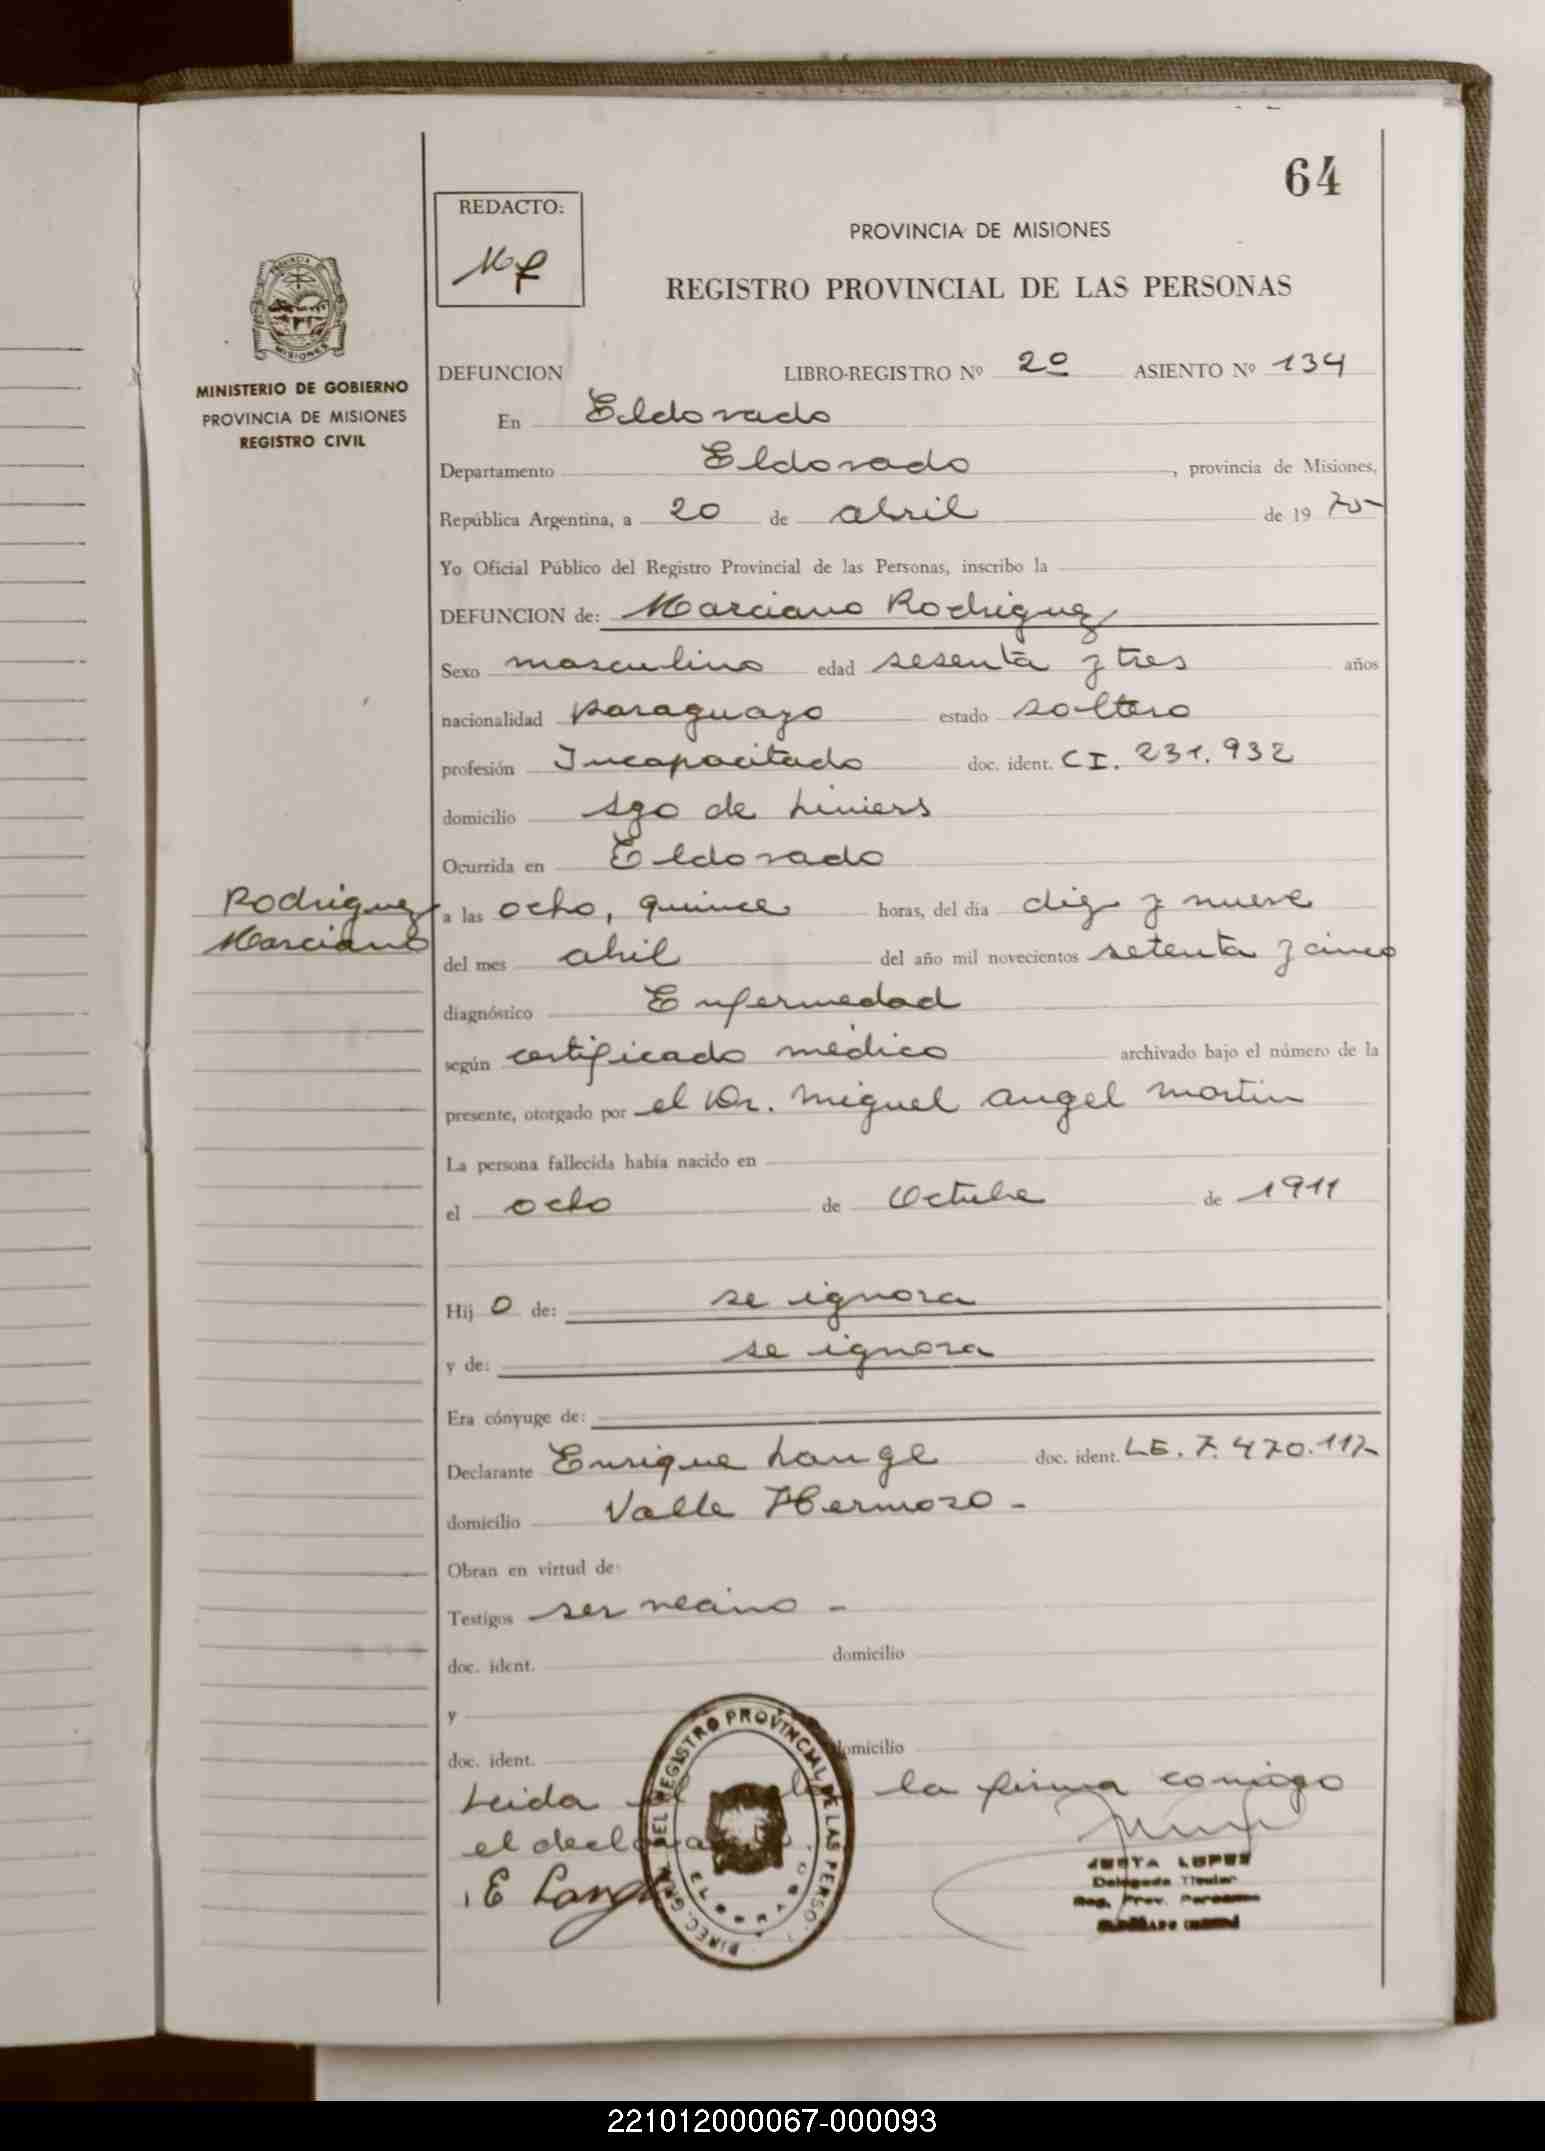 64
REDACTO:
PROVINCIA DE MISIONES
REGISTRO PROVINCIAL DE LAS PERSONAS
PROVINCIA
MISIONES
MINISTERIO DE GOBIERNO
PROVINCIA DE MISIONES
REGISTRO CIVIL
DEFUNCION LIBRO-REGISTRO Nº 2º ASIENTO Nº 134
En Eldorado
Departamento Eldorado, provincia de Misiones,
República Argentina, a 20 de abril de 19 75
Yo Oficial Público del Registro Provincial de las Personas, inscribo la
DEFUNCION de: Marciano Rodriguez
Sexo masculino edad sesenta y tres años
nacionalidad paraguayo estado soltero
profesión Incapacitado doc. ident. CI. 231.932
domicilio Sgo de Liniers
Ocurrida en Eldorado
Rodriguez
Marciano
a las ocho, quince horas, del día diez y nueve
del mes abril del año mil novecientos setenta y cinco
diagnóstico Enfermedad
según certificado médico archivado bajo el número de la
presente, otorgado por el Dr. Miguel Angel Martin
La persona fallecida había nacido en
el ocho de Octubre de 1911
Hij o de: se ignora
y de: se ignora
Era cónyuge de:
Declarante Enrique Lange doc. ident. LE. 7.470.117
domicilio Valle Hermoso -
Obran en virtud de:
Testigos ser vecino -
doc. ident. domicilio
y
doc. ident. domicilio
Leida el la firma conmigo
el
E Lange
DIREC. GRAL. DEL REGISTRO PROVINCIAL DE LAS PERSO
ELDORADO
JUSTA LOPEZ
Delegada Titular
Reg. Prov. Personas
221012000067-000093